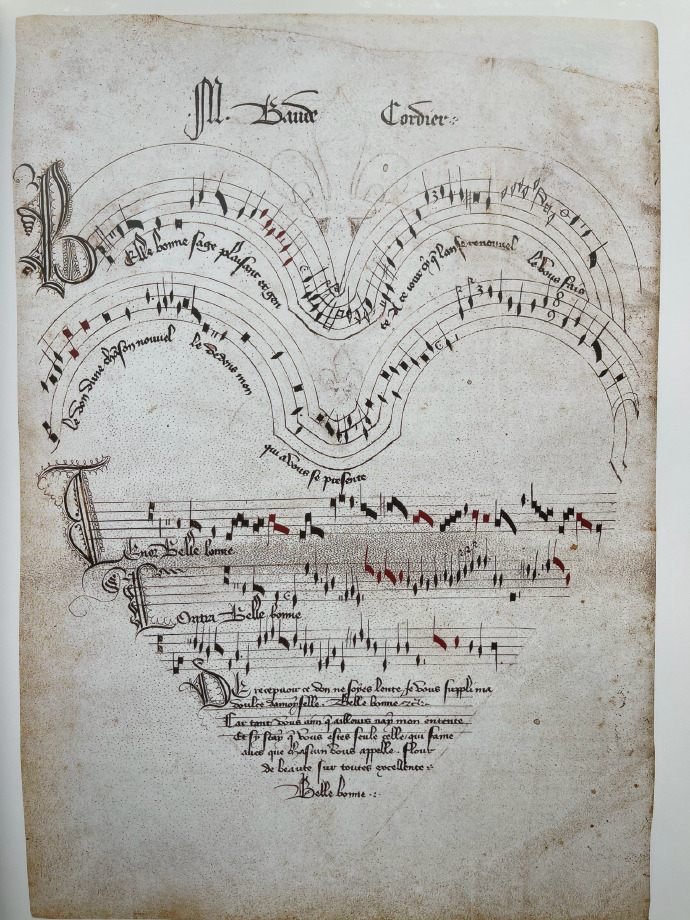 M. Baude Cordier
Belle bonne sage plaisant et gen
te A ce iour cy que lan se renouvel
le Vous fais
le don dune chanson nouvel
le Dedens mon
qui a vous se presente
Tenor Belle bonne
Contra Belle bonne
DE recepvoir ce don ne soyes lente Je vous suppli ma
doulce damoyselle. Belle bonne
Car tant vous aim qu'aillours nay mon entente
Et sy scay que vous estes seule celle qui fame
aves que chascun vous appelle. Flour
de beaute sur toutes excellente
Belle bonne